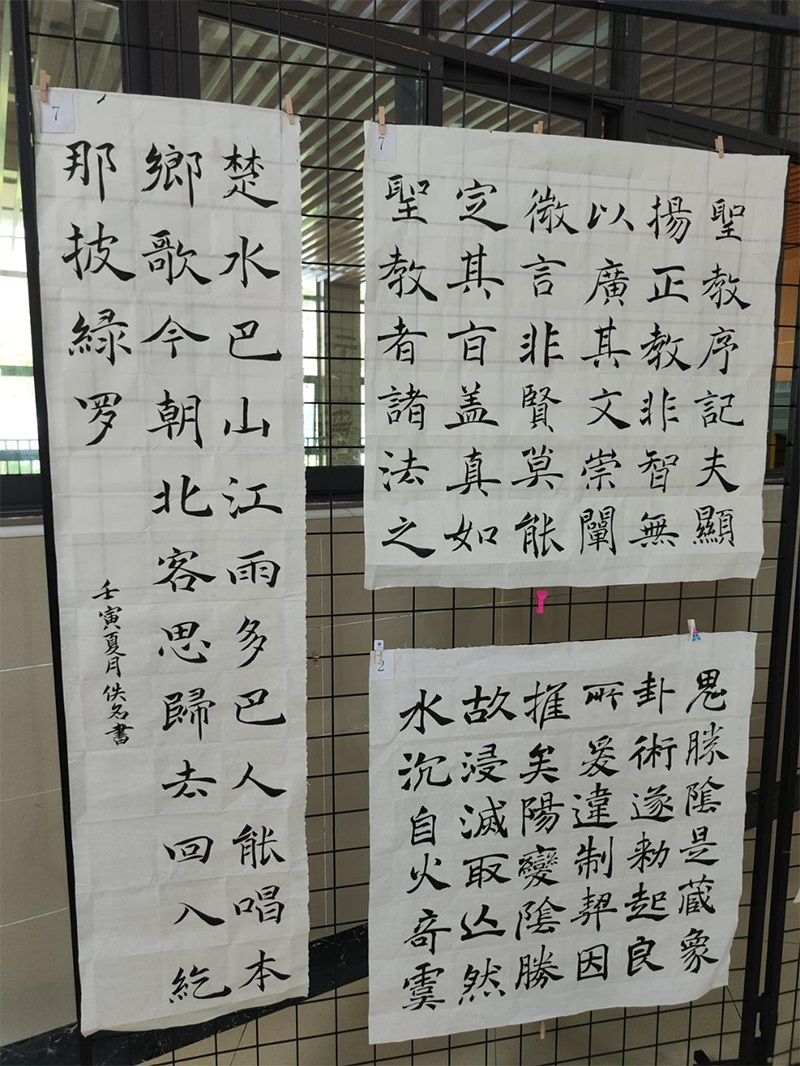 7
楚水巴山江雨多巴人能唱本
鄉歌今朝北客思歸去回入紇
那披緑罗
壬寅夏月佚名書
7
聖教序記夫顯
揚正教非智無
以廣其文崇闡
微言非賢莫能
定其旨盖真如
聖教者諸法之
2
勝陰是蔵象
卦術遂勑起良
所爰違制契因
推矣陽變陰勝
故浸滅取亾然
水沉自火奇